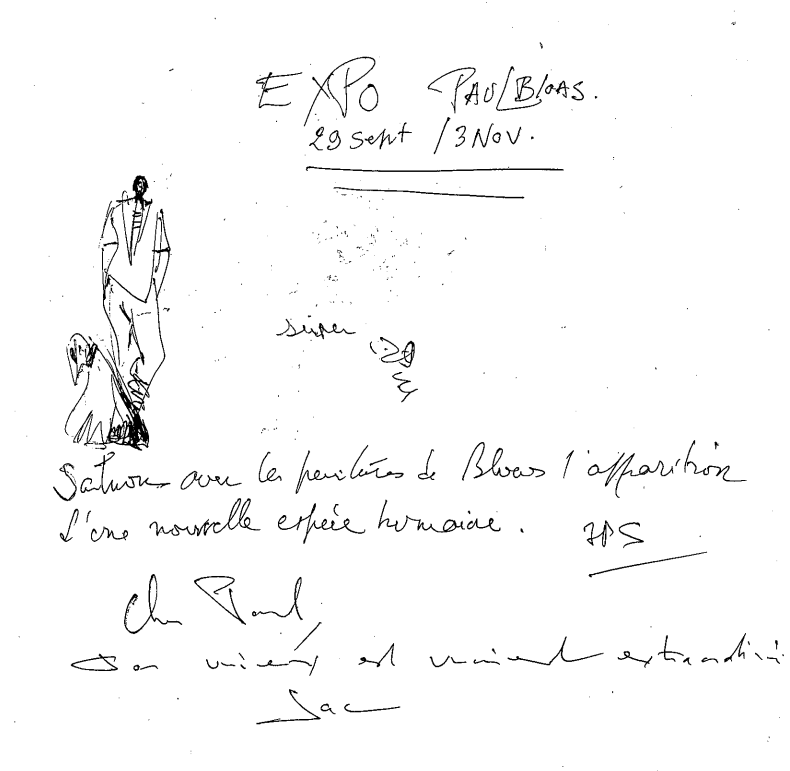 EXPO PAUL BLOAS.
29 Sept / 3 NOV.
super
Saluons avec les peintures de Bloas l'apparition
d'une nouvelle espèce humaine. JPS
Cher Paul,
Ton est vraiment extraordinai
Jac